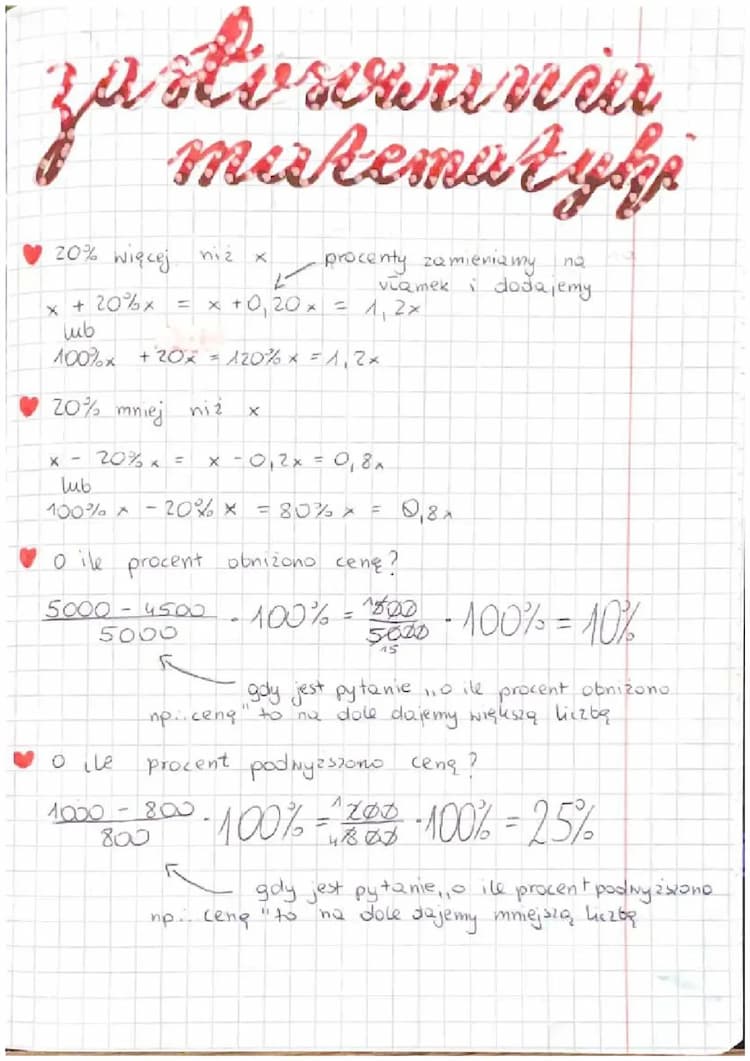 zastosowania
matematyki
20% więcej niż x procenty zamieniamy na
ułamek i dodajemy
x + 20%x = x + 0,20x = 1,2x
lub
100%x + 20x = 120%x = 1,2x
20% mniej niż x
x - 20%x = x - 0,2x = 0,8x
lub
100%x - 20%x = 80%x = 0,8x
O ile procent obniżono cenę?
5000 - 4500 / 5000 · 100% = 500 / 5000 · 100% = 10%
gdy jest pytanie „o ile procent obniżono
np.: cenę" to na dole dajemy większą liczbę
O ile procent podwyższono cenę?
1000 - 800 / 800 · 100% = 200 / 800 · 100% = 25%
gdy jest pytanie „o ile procent podwyższono
np.: cenę" to na dole dajemy mniejszą liczbę